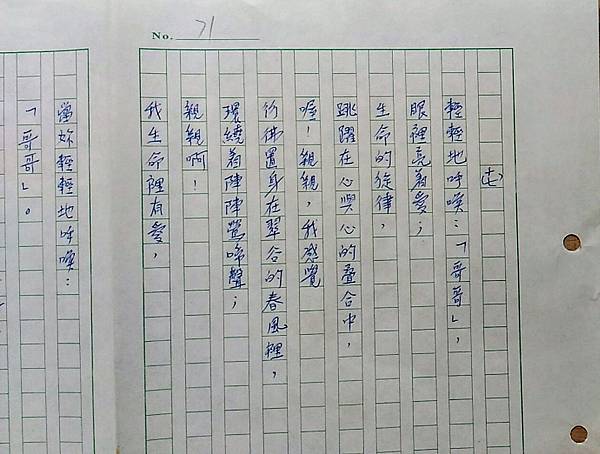 No. 71
(七)
輕輕地呼喚：「哥哥」，
眼裡亮著愛；
生命的旋律，
跳躍在心與心的疊合中，
喔！親親，我感覺
彷彿置身在翠谷的春風裡，
環繞着陣陣鶯啼聲；
親親啊！
我生命裡有愛，
當妳輕輕地呼喚：
「哥哥」。